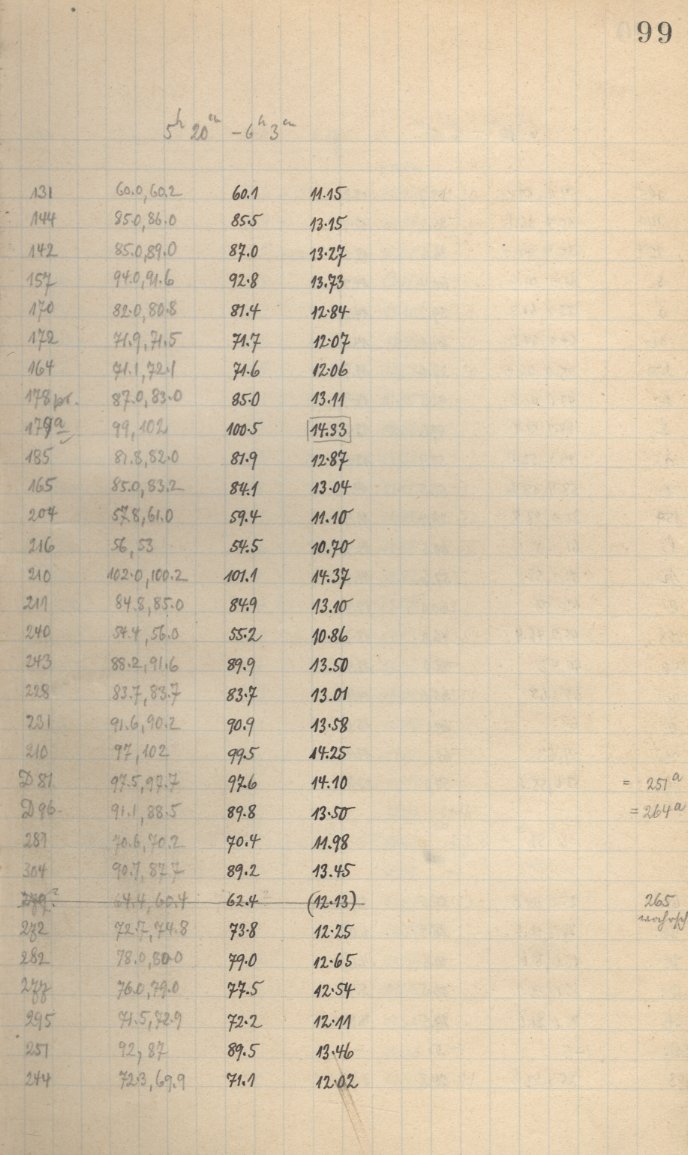 99
5h 20m - 6h 3m
131 60.0, 60.2 60.1 11.15
144 85.0, 86.0 85.5 13.15
142 85.0, 89.0 87.0 13.27
157 94.0, 91.6 92.8 13.73
170 82.0, 80.8 81.4 12.84
172 71.9, 71.5 71.7 12.07
164 71.1, 72.1 71.6 12.06
178 pr. 87.0, 83.0 85.0 13.11
179a 99, 102 100.5 14.33
185 81.8, 82.0 81.9 12.87
165 85.0, 83.2 84.1 13.04
204 57.8, 61.0 59.4 11.10
216 56, 53 54.5 10.70
210 102.0, 100.2 101.1 14.37
211 84.8, 85.0 84.9 13.10
240 54.4, 56.0 55.2 10.86
243 88.2, 91.6 89.9 13.50
228 83.7, 83.7 83.7 13.01
231 91.6, 90.2 90.9 13.58
210 97, 102 99.5 14.25
D 81 97.5, 97.7 97.6 14.10 = 251a
D 96 91.1, 88.5 89.8 13.50 = 264a
281 70.6, 70.2 70.4 11.98
304 90.7, 87.7 89.2 13.45
64.4, 60.4 62.4 (12.13) 265
wahrsch
232 72.7, 74.8 73.8 12.25
282 78.0, 80.0 79.0 12.65
277 76.0, 79.0 77.5 12.54
295 71.5, 72.9 72.2 12.11
251 92, 87 89.5 13.46
244 72.3, 69.9 71.1 12.02